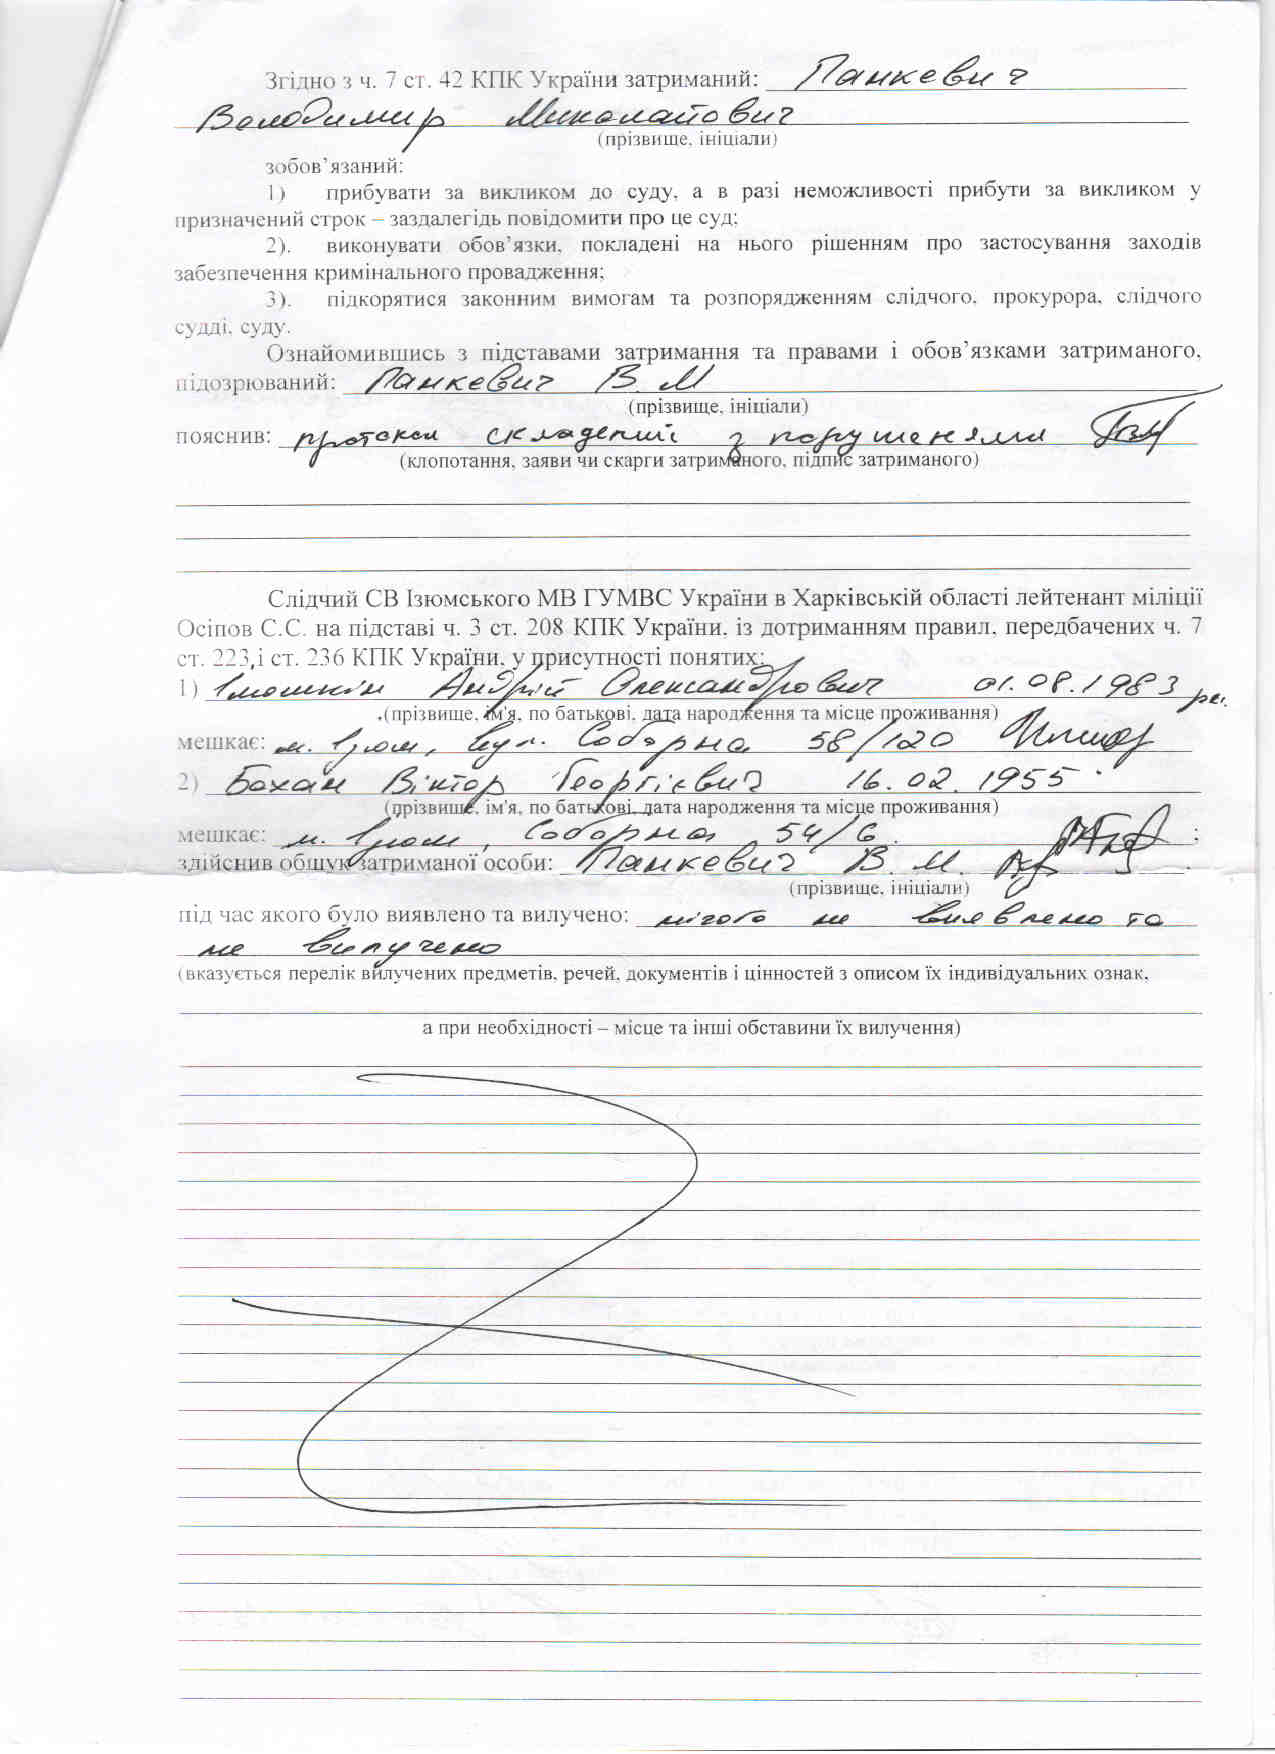 Згідно з ч. 7 ст. 42 КПК України затриманий: Панкевич
Володимир Миколайович
(прізвище, ініціали)
зобов'язаний:
1) прибувати за викликом до суду, а в разі неможливості прибути за викликом у
призначений строк – заздалегідь повідомити про це суд;
2). виконувати обов'язки, покладені на нього рішенням про застосування заходів
забезпечення кримінального провадження;
3). підкорятися законним вимогам та розпорядженням слідчого, прокурора, слідчого
судді, суду.
Ознайомившись з підставами затримання та правами і обов'язками затриманого,
підозрюваний: Панкевич В. М
(прізвище, ініціали)
пояснив: протокол складений з порушенями
(клопотання, заяви чи скарги затриманого, підпис затриманого)
Слідчий СВ Ізюмського МВ ГУМВС України в Харківській області лейтенант міліції
Осіпов С.С. на підставі ч. 3 ст. 208 КПК України, із дотриманням правил, передбачених ч. 7
ст. 223,і ст. 236 КПК України, у присутності понятих:
1) Андрій Олександрович 01.08.1983 рн.
(прізвище, ім'я, по батькові, дата народження та місце проживання)
мешкає: м. Ізюм, вул. Соборна 58/120
2) Бохан Віктор Георгієвич 16.02.1955
(прізвище, ім'я, по батькові, дата народження та місце проживання)
мешкає: м. Ізюм, Соборна 54/6 ;
здійснив обшук затриманої особи: Панкевич В. М.
(прізвище, ініціали)
під час якого було виявлено та вилучено: нічого не виявлено та
не вилучено
(вказується перелік вилучених предметів, речей, документів і цінностей з описом їх індивідуальних ознак,
а при необхідності – місце та інші обставини їх вилучення)